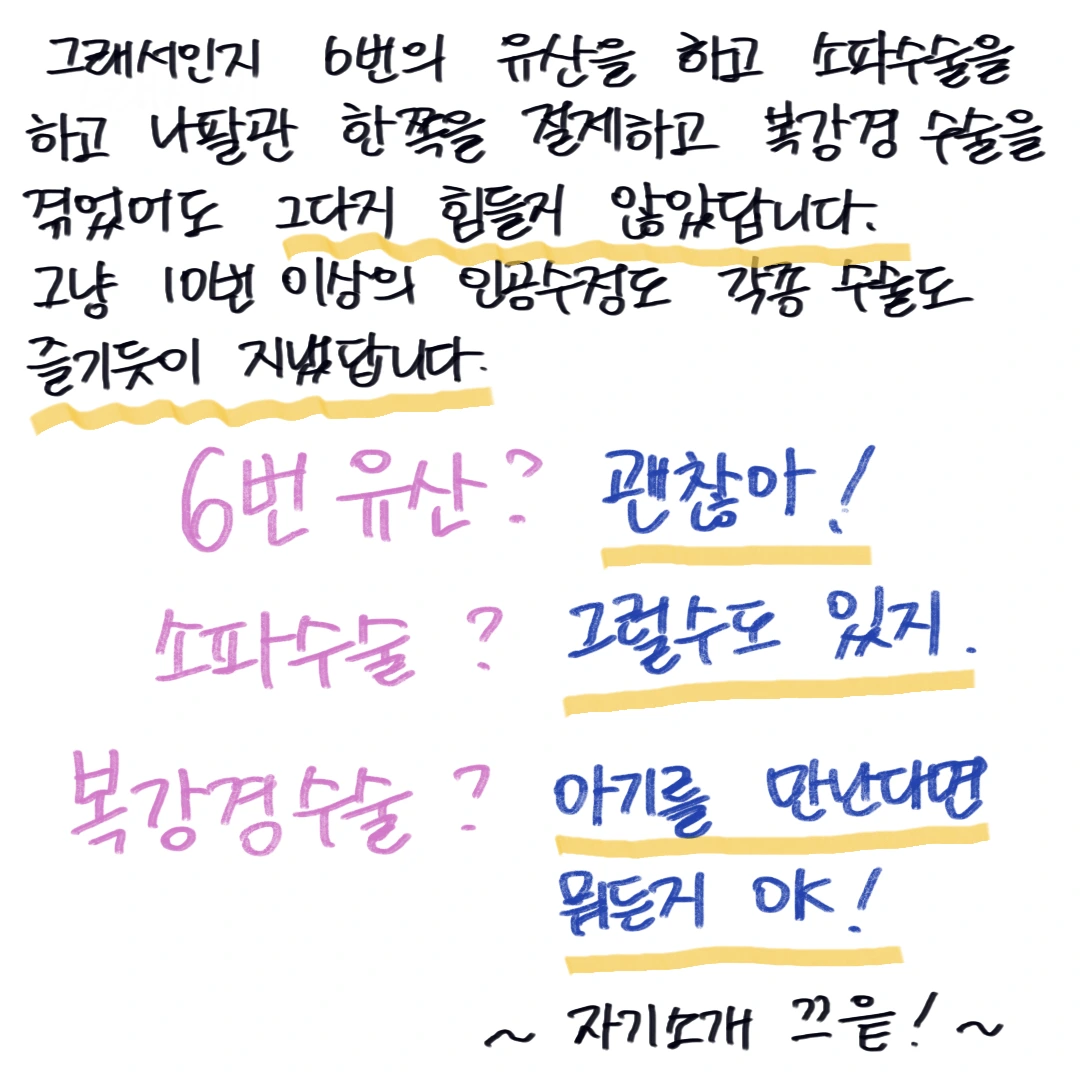 그래서인지 6번의 유산을 하고 소파수술을
하고 나팔관 한쪽을 절제하고 복강경 수술을
겪었어도 그다지 힘들지 않았답니다.
그냥 10번 이상의 인공수정도 각종 수술도
즐기듯이 지냈답니다.
6번 유산? 괜찮아!
소파수술? 그럴수도 있지.
복강경수술? 아기를 만난다면
뭐든지 OK!
~ 자기소개 끄읕! ~